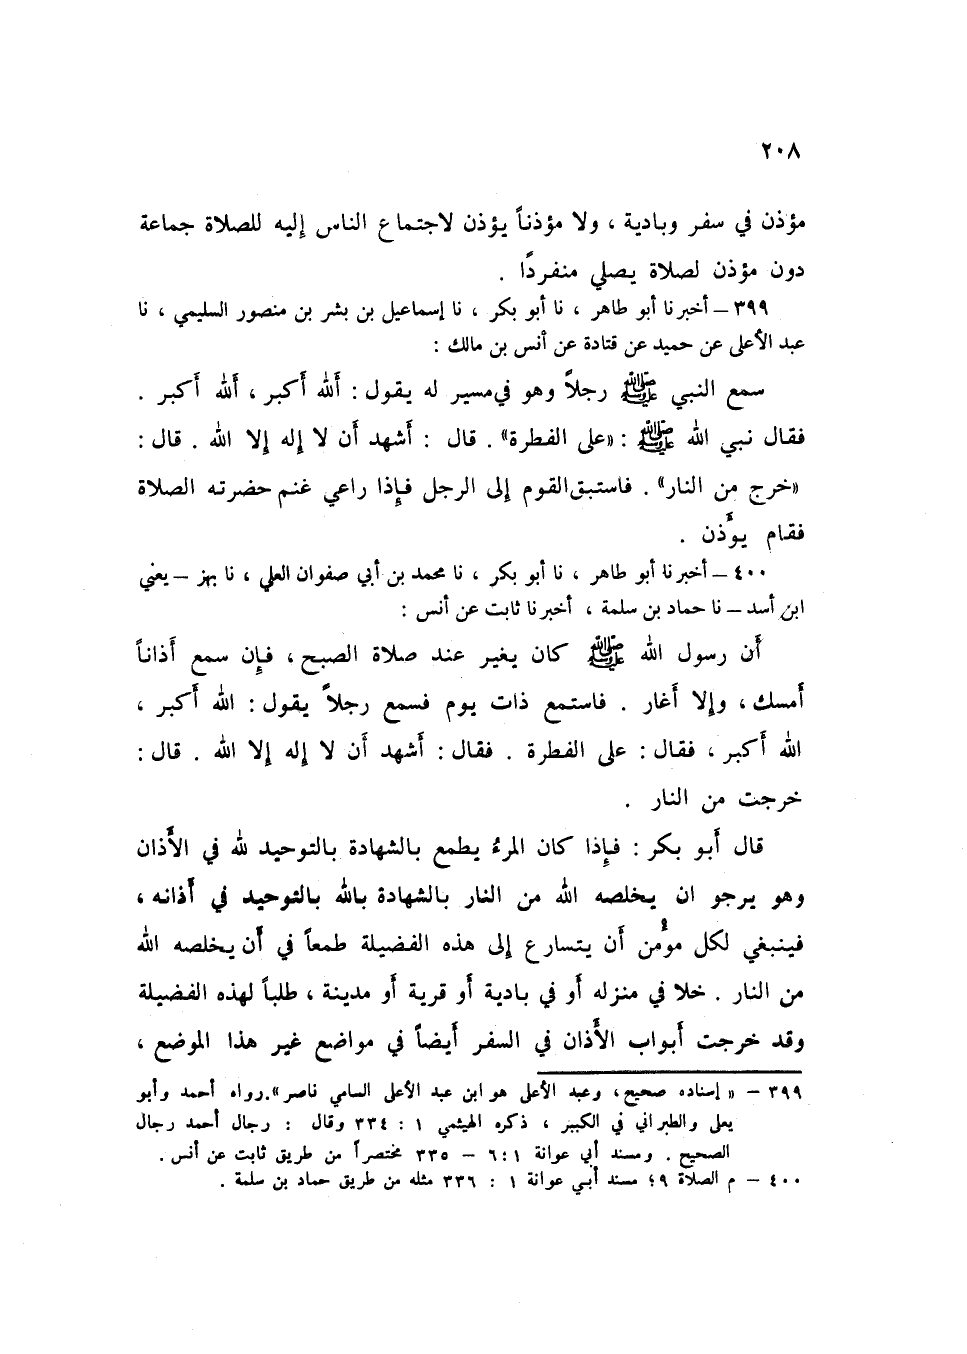 ٢٠٨
مؤذن في سفر وبادية ، ولا مؤذناً يؤذن لاجتماع الناس إليه للصلاة جماعة
دون مؤذن لصلاة يصلي منفردًا .
٣٩٩ – أخبرنا أبو طاهر ، نا أبو بكر ، نا إسماعيل بن بشر بن منصور السليمي ، نا
عبد الأعلى عن حميد عن قتادة عن أنس بن مالك :
سمع النبي ﷺ رجلاً وهو في مسير له يقول : ألله أكبر ، ألله أكبر .
فقال نبي الله ﷺ : «على الفطرة» . قال : أشهد أن لا إله إلا الله . قال :
«خرج من النار» . فاستبق القوم إلى الرجل فإذا راعي غنم حضرته الصلاة
فقام يؤذن .
٤٠٠ – أخبرنا أبو طاهر ، نا أبو بكر ، نا محمد بن أبي صفوان العلي ، نا بهز – يعني
ابن أسد – نا حماد بن سلمة ، أخبرنا ثابت عن أنس :
أن رسول الله ﷺ كان يغير عند صلاة الصبح ، فإن سمع أذاناً
أمسك ، وإلا أغار . فاستمع ذات يوم فسمع رجلاً يقول : الله أكبر ،
الله أكبر ، فقال : على الفطرة . فقال : أشهد أن لا إله إلا الله . قال :
خرجت من النار .
قال أبو بكر : فإذا كان المرء يطمع بالشهادة بالتوحيد لله في الأذان
وهو يرجو ان يخلصه الله من النار بالشهادة بالله بالتوحيد في أذانه ،
فينبغي لكل مؤمن أن يتسارع إلى هذه الفضيلة طمعاً في أن يخلصه الله
من النار . خلا في منزله أو في بادية أو قرية أو مدينة ، طلباً لهذه الفضيلة
وقد خرجت أبواب الأذان في السفر أيضاً في مواضع غير هذا الموضع ،
٣٩٩ – « إسناده صحيح ، وعبد الأعلى هو ابن عبد الأعلى السامي ناصر» . رواه أحمد وأبو
يعلى والطبراني في الكبير ، ذكره الهيثمي ١ : ٣٣٤ وقال : رجال أحمد رجال
الصحيح . ومسند أبي عوانة ١ : ٦ – ٣٣٥ مختصراً من طريق ثابت عن أنس .
٤٠٠ – م الصلاة ٩ ؛ مسند أبي عوانة ١ : ٣٣٦ مثله من طريق حماد بن سلمة .